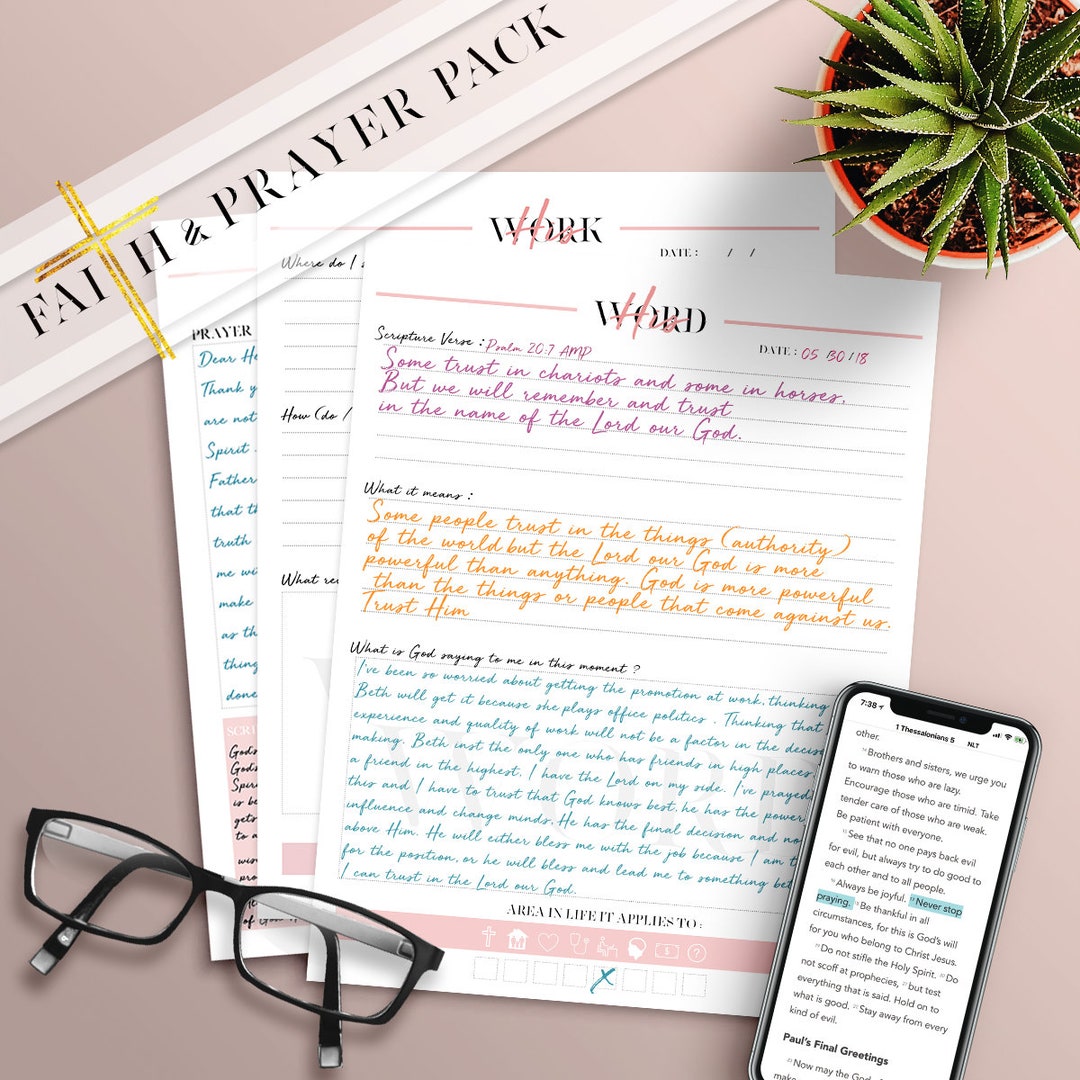 FAITH & PRAYER PACK
His WORK
DATE : / /
Where do I
How (do /
What
PRAYER
Dear
Thank
are not
Spirit
Father
that
truth
me
make
as
done
His WORD
Scripture Verse : Psalm 20:7 AMP
DATE : 05 30 / 18
Some trust in chariots and some in horses,
But we will remember and trust
in the name of the Lord our God.
What it means :
Some people trust in the things (authority)
of the world but the Lord our God is more
powerful than anything. God is more powerful
than the things or people that come against us.
Trust Him
What is God saying to me in this moment ?
I've been so worried about getting the promotion at work, thinking
Beth will get it because she plays office politics . Thinking that
experience and quality of work will not be a factor in the
making. Beth inst the only one who has friends in high places,
a friend in the highest, I have the Lord on my side. I've prayed
this and I have to trust that God knows best, he has the power
influence and change minds, He has the final decision and
above Him. He will either bless me with the job because I am
for the position, or he will bless and lead me to something
I can trust in the Lord our God.
AREA IN LIFE IT APPLIES TO :
$ ?
X
God's
God's
is
gets
to
of God
7:38
1 Thessalonians 5 NLT
other.
14 Brothers and sisters, we urge you
to warn those who are lazy.
Encourage those who are timid. Take
tender care of those who are weak.
Be patient with everyone.
15 See that no one pays back evil
for evil, but always try to do good to
each other and to all people.
16 Always be joyful. 17 Never stop
praying. 18 Be thankful in all
circumstances, for this is God's will
for you who belong to Christ Jesus.
19 Do not stifle the Holy Spirit. 20 Do
not scoff at prophecies, 21 but test
everything that is said. Hold on to
what is good. 22 Stay away from every
kind of evil.
Paul's Final Greetings
23 Now may the God
make